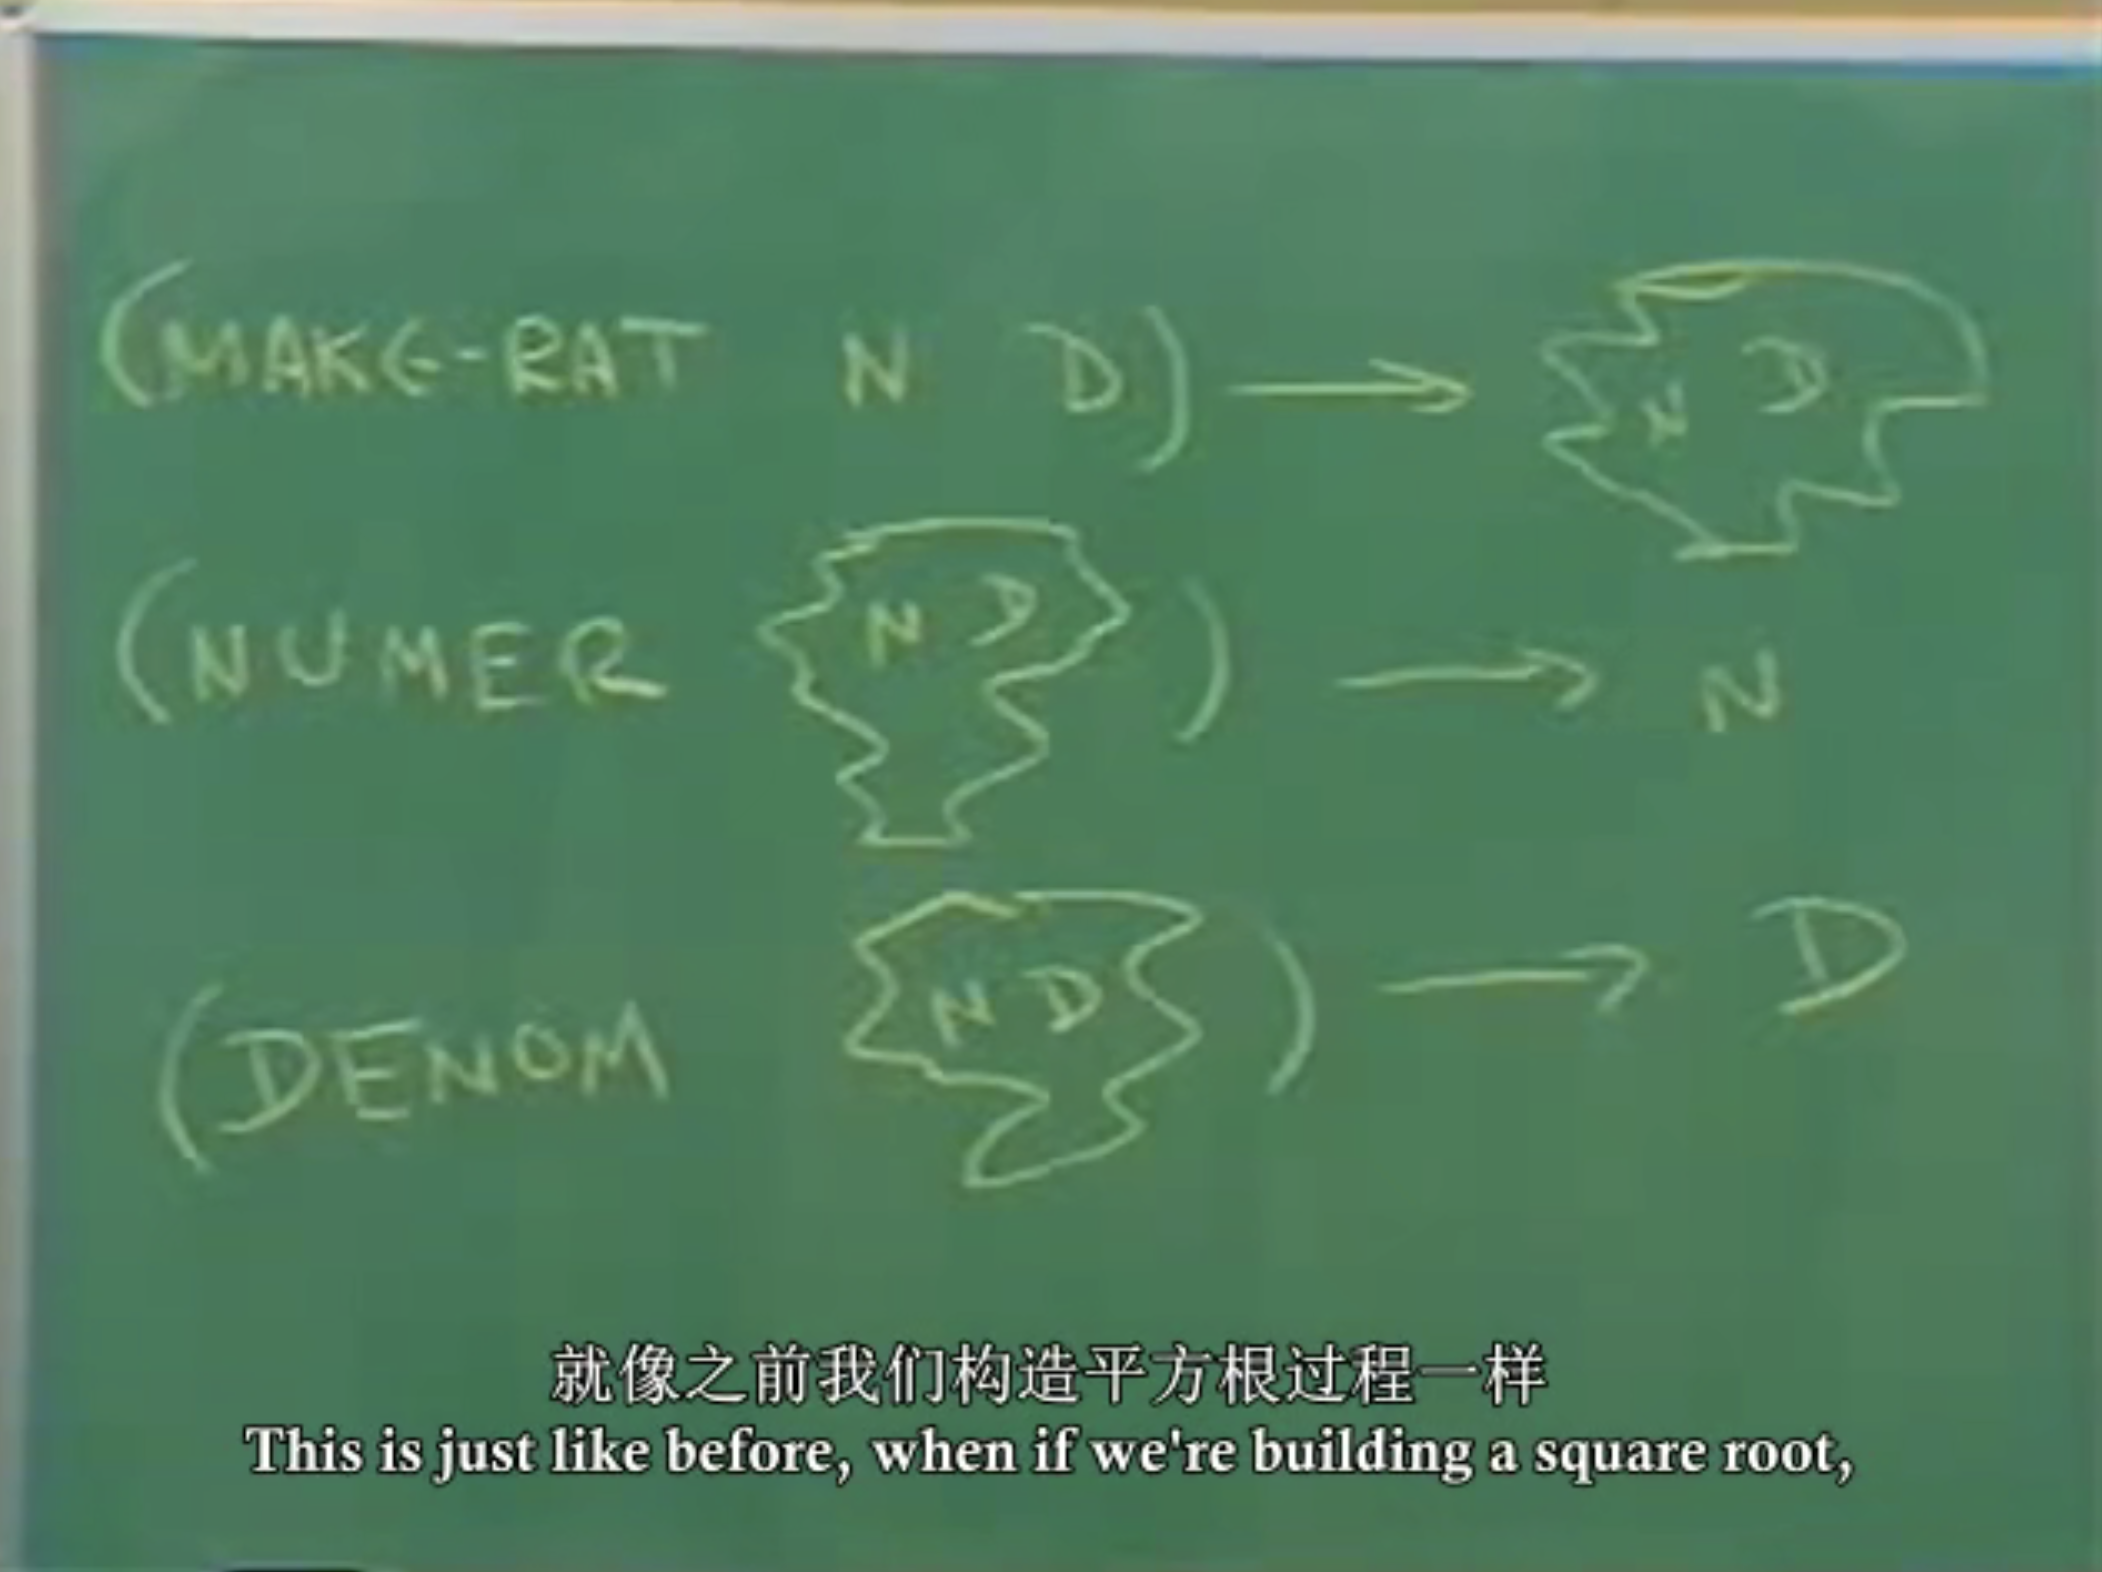 (MAKE-RAT N D) → N D
(NUMER N D ) → N
(DENOM N D ) → D
就像之前我们构造平方根过程一样
This is just like before, when if we're building a square root,